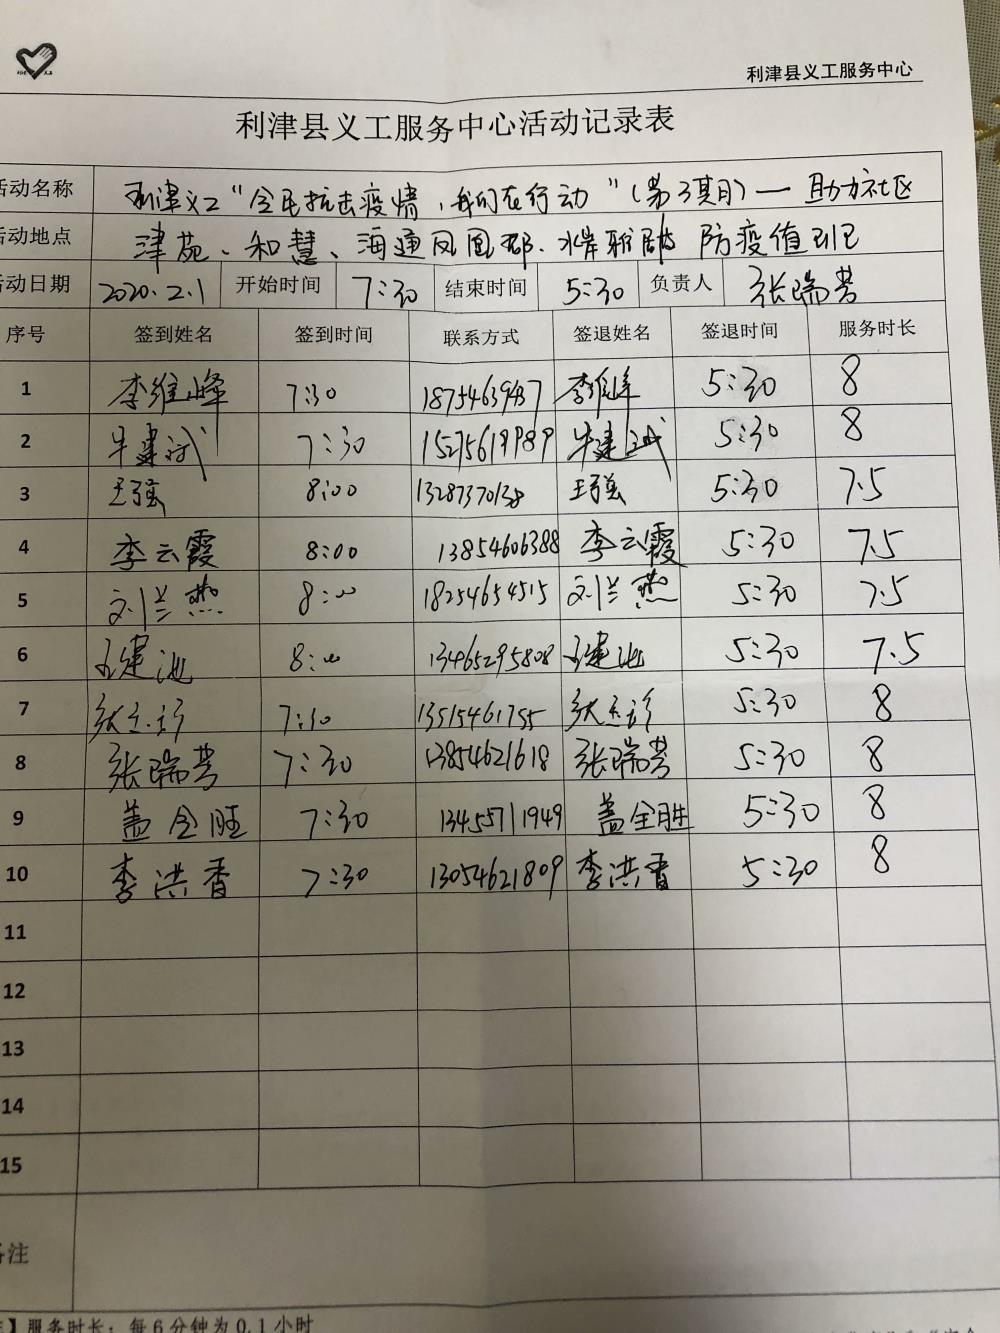 利津县义工服务中心
利津县义工服务中心活动记录表
活动名称 利津义工“全民抗击疫情，我们在行动”（第3期）— 助力社区
活动地点 津苑、和慧、海通凤凰郡、水岸雅居 防疫值班
活动日期 2020.2.1 开始时间 7:30 结束时间 5:30 负责人 张瑞芳
序号 签到姓名 签到时间 联系方式 签退姓名 签退时间 服务时长
1 李维峰 7:30 18754639437 李维峰 5:30 8
2 牛建斌 7:30 15275619989 牛建斌 5:30 8
3 王强 8:00 13287370138 王强 5:30 7.5
4 李云霞 8:00 13854606388 李云霞 5:30 7.5
5 刘兰燕 8:00 18254654515 刘兰燕 5:30 7.5
6 建池 8:00 13465295808 建池 5:30 7.5
7 张玉珍 7:30 13515461755 张玉珍 5:30 8
8 张瑞芳 7:30 13854621618 张瑞芳 5:30 8
9 盖全胜 7:30 13455711949 盖全胜 5:30 8
10 李洪香 7:30 13054621809 李洪香 5:30 8
11
12
13
14
15
备注
】服务时长：每6分钟为0.1小时